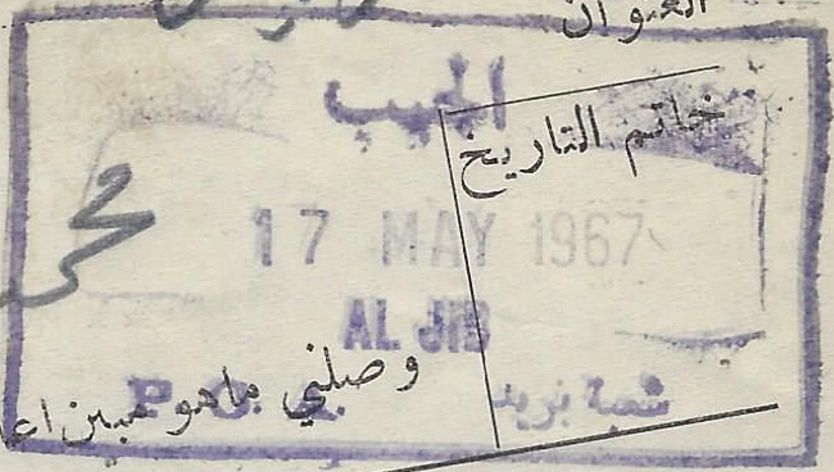 العنوان
الجيب
خاتم التاريخ
17 MAY 1967
AL JIB
وصلني ماهو مبين
شعبة بريد